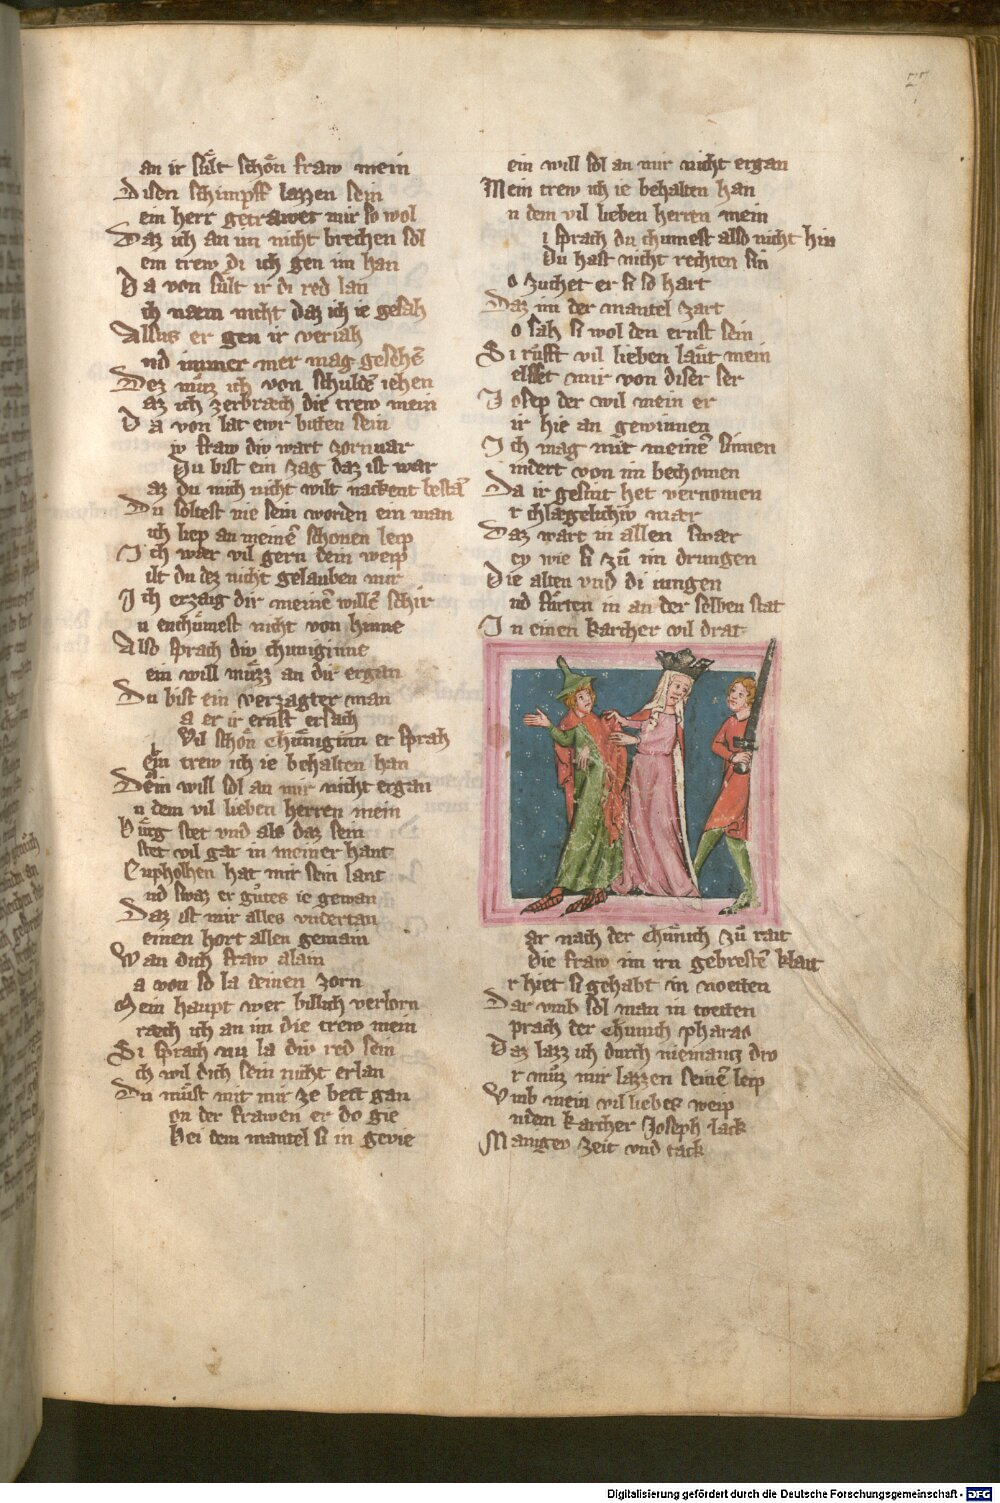 an ir sult schön fraw mein
Disen schimpff lazzen sein
ein herr getrawet mir so wol
Daz ich an im nicht brechen sol
ein trew di ich gen im han
Da von sült ir di red lan
ich naem nicht daz ich ie gesah
Alsus er gen ir veriah
nd immer mer mag geschē
Dez müz ich von schuldē iehen
az ich zerbraech die trew mein
Da von lat ewr biten sein
iv fraw div wart zornuar
Du bist ein zag daz ist war
az du mich nicht wilt nackent bestā
Du soltest nie sein worden ein man
ich liep an meinē schonen leip
Ich waer vil gern dein weip
ilt du dez nicht gelauben mir
Ich erzaig dir meinē willē schir
u enchümest nicht von hinne
Also sprach div chuniginne
ein will müzz an dir ergan
Du bist ein verzagter man
a er ir ernst ersach
Vil schön chüniginn er sprah
ein trew ich ie behalten han
Dein will sol an mir nicht ergan
n dem vil lieben herren mein
Bürg stet vnd als daz sein
stet vil gar in meiner hant
Enpholhen hat mir sein lant
nd swaz er gütes ie gewan
Daz ist mir alles vndertan
einen hort allen gemain
Wan dich fraw alain
a von so la deinen zorn
Mein haupt wer billich verlorn
raech ich an im die trew mein
Si sprach nu la div red sein
ch wil dich sein nicht erlan
Du müst mit mir ze bett gan
on der frawen er do gie
Bei dem mantel si in gevie
ein will sol an mir nicht ergan
Mein trew ich ie behalten han
n dem vil lieben herren mein
i sprach du chumest also nicht hin
Du hast nicht rechten sin
o zuchet er si so hart
Daz im der mantel zart
o sah si wol den ernst sein
Si rüfft vil lieben läut mein
elffet mir von diser ser
Iosep der wil mein er
ir hie an gewinnen
Ich mag mit meinē sinnen
indert von im bechomen
Da ir gesint het vernomen
r chlägelichiv maer
Daz wart in allen swaer
ey wie si zü im drungen
Die alten vnd di iungen
nd fürten in an der selben stat
In einen karcher vil drat
ar nach der chünich zü rait
die fraw im irn gebrestē klait
r hiet si gehabt in noeten
Dar vmb sol man in toeten
prach der chünich pharao
Daz lazz ich durch niemantz dro
r müz mir lazzen seinē leip
Vmb mein vil liebes weip
ndem karcher Joseph lack
Manigev zeit vnd tack
Digitalisierung gefördert durch die Deutsche Forschungsgemeinschaft - DFG